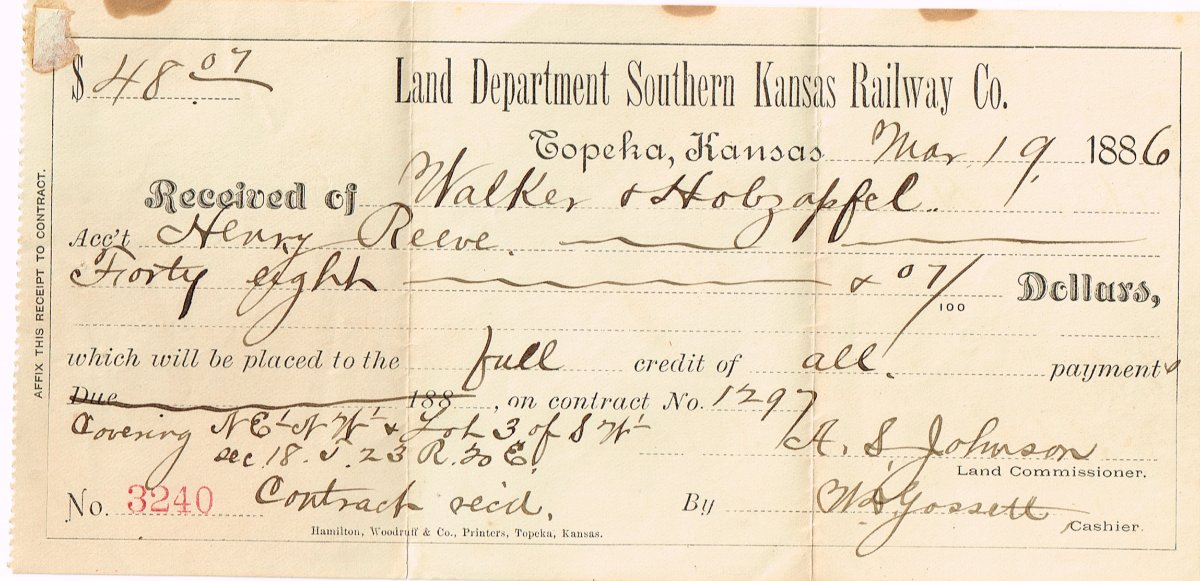 $ 48.07 Land Department Southern Kansas Railway Co.
Topeka, Kansas Mar. 19, 1886
Received of Walker & Holzapfel.
Acc't Henry Reeve.
Forty eight & 07/100 Dollars,
which will be placed to the full credit of all. payments
Due 188 , on contract No. 1297
Covering N E¼ N W¼ & Lot 3 of S W¼
sec. 18. T. 23 R. 20 E.
A. S. Johnson
Land Commissioner.
No. 3240 Contract rec'd. By W. Gossett
Cashier.
Hamilton, Woodruff & Co., Printers, Topeka, Kansas.
AFFIX THIS RECEIPT TO CONTRACT.